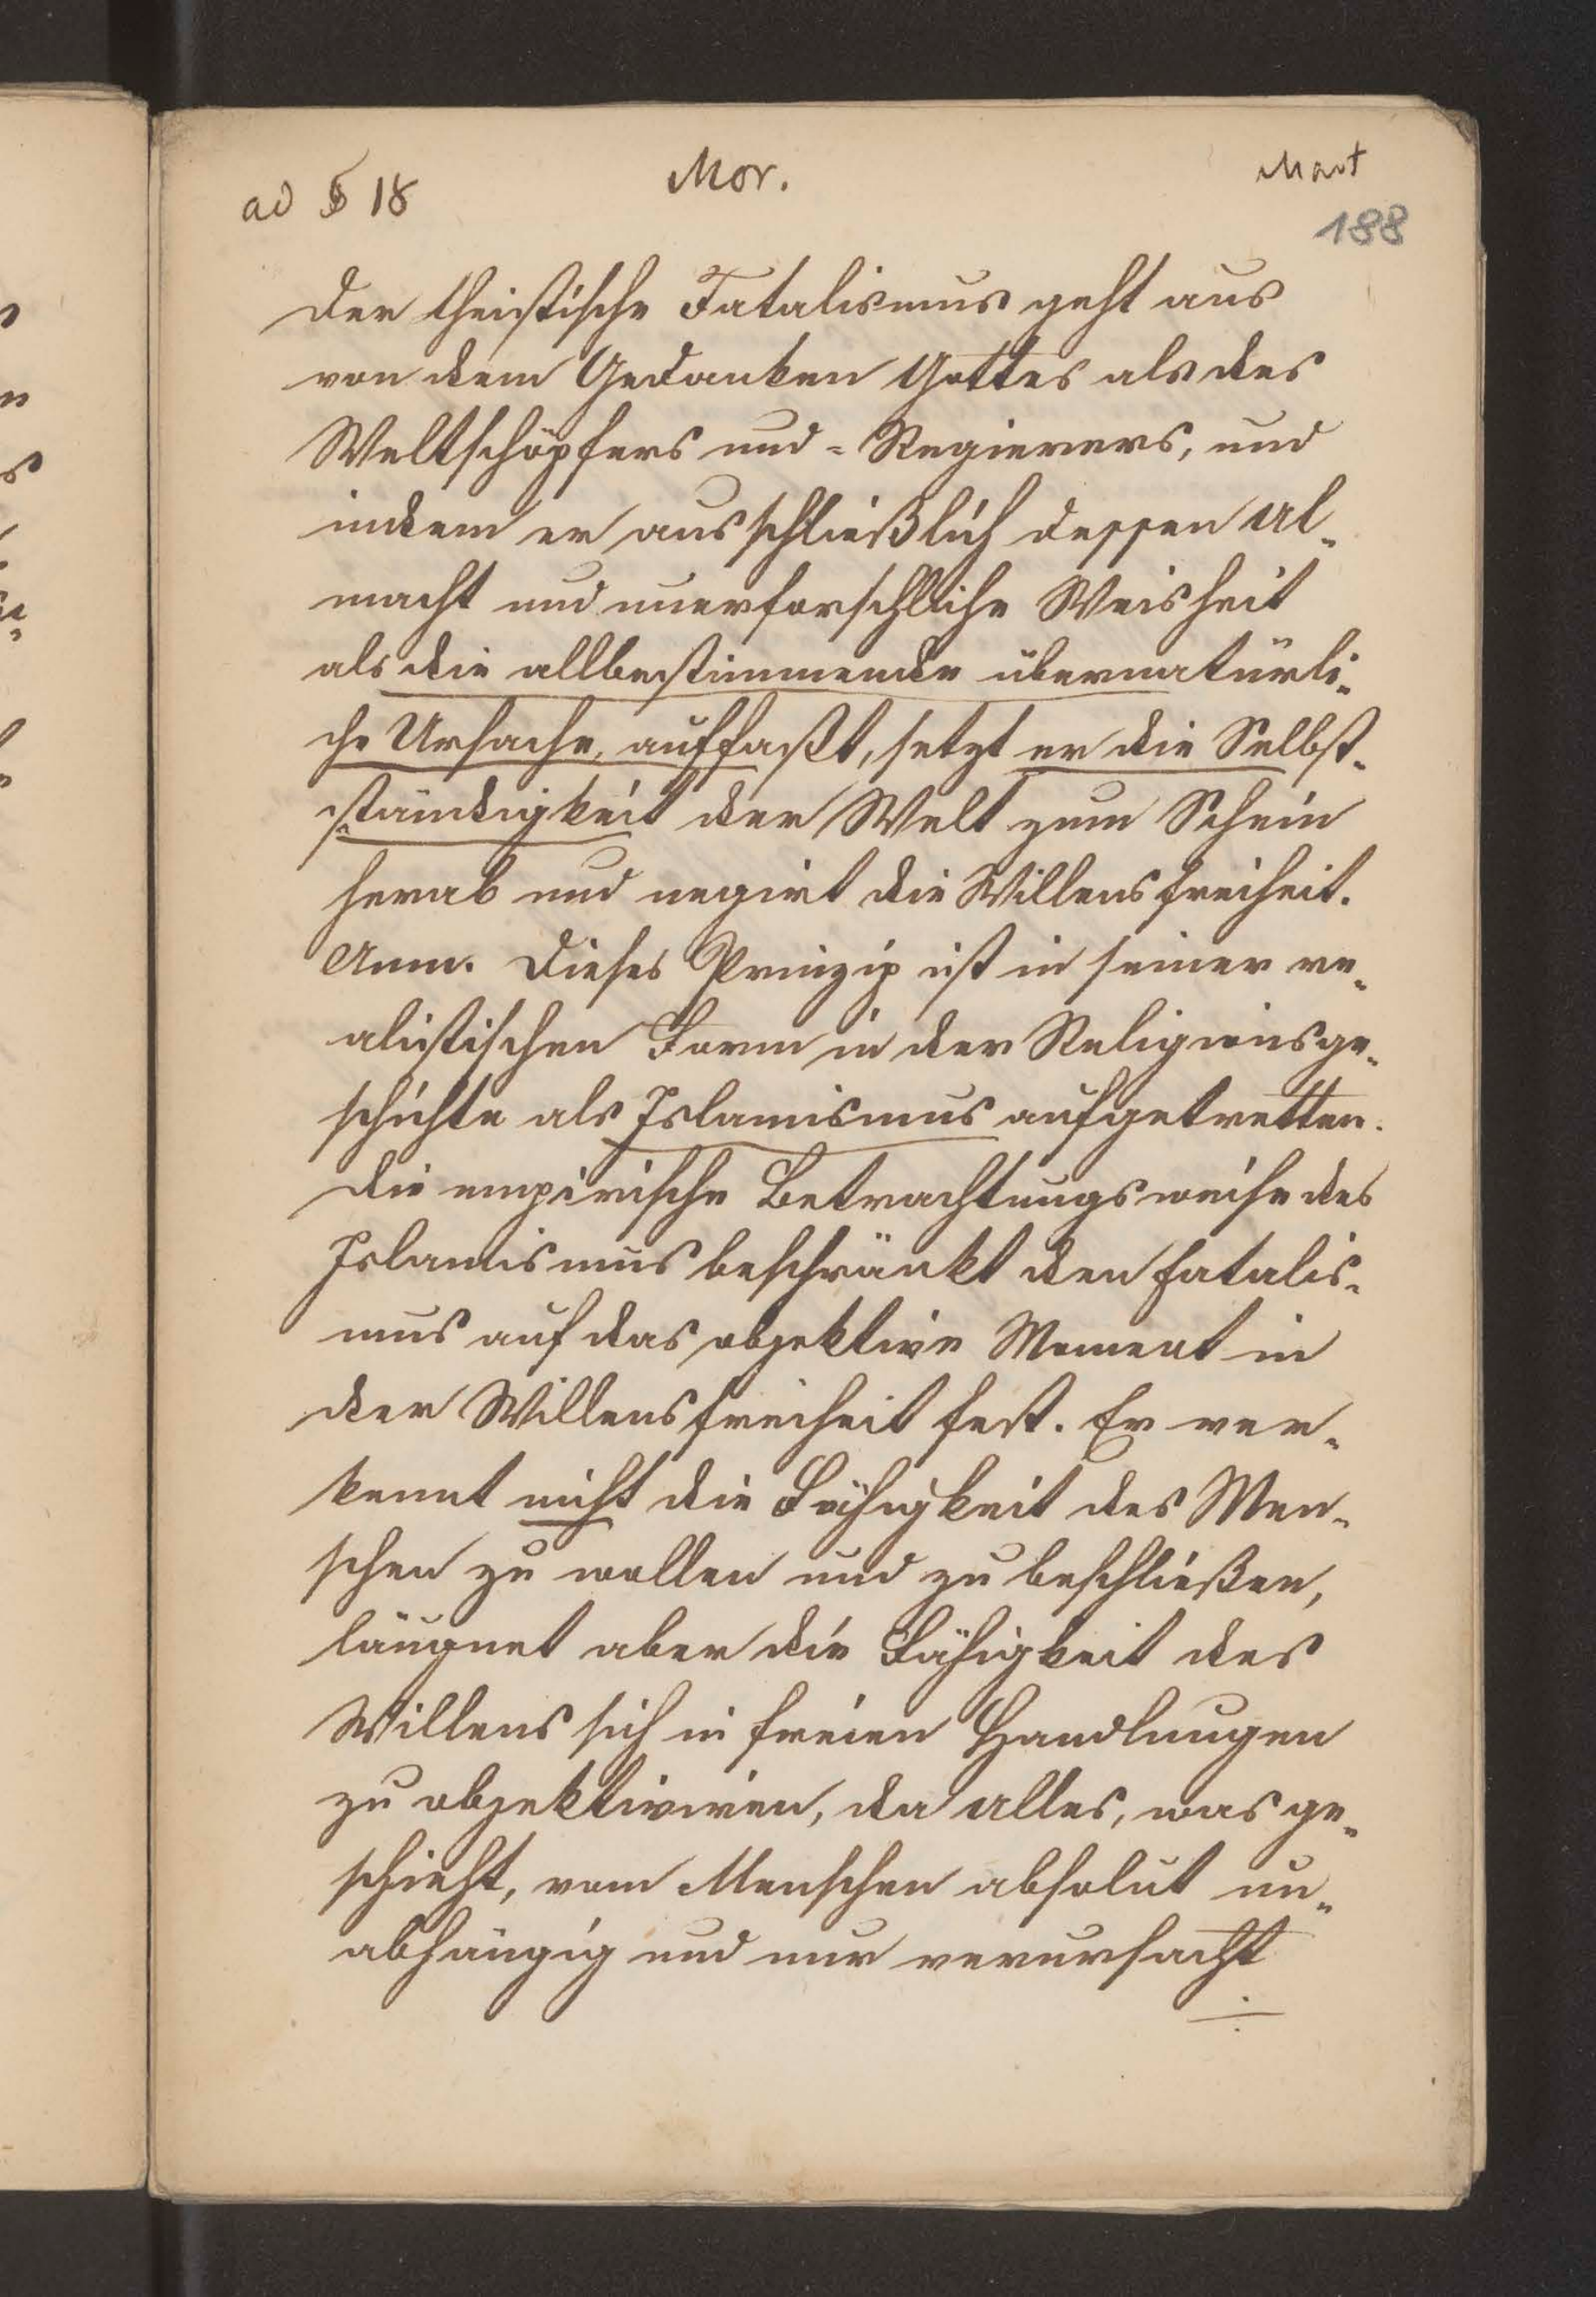 ad § 18
Mor.
Mart
188
Der theistische Fatalismus geht aus
von dem Gedanken Gottes als des
Weltschöpfers und -Regierers, und
indem er ausschließlich dessen Al-
macht und unerforschliche Weisheit
als die allbestimmende übernatürli-
che Ursache, auffaßt, setzt er die Selbst-
ständigkeit der Welt zum Schein
herab und negirt die Willensfreiheit.
Anm. Dieses Prinzip ist in seiner re-
alistischen Form in der Religionsge-
schichte als Islamismus aufgetretten.
Die empirische Betrachtungsweise des
Islamismus beschränkt den Fatalis-
mus auf das objektive Moment in
der Willensfreiheit fest. Er ver-
kennt nicht die Fähigkeit des Men-
schen zu wollen und zu beschließen,
läugnet aber die Fähigkeit des
Willens sich in freien Handlungen
zu objektiviren, da alles, was ge-
schieht, vom Menschen absolut un-
abhängig und nur verursacht